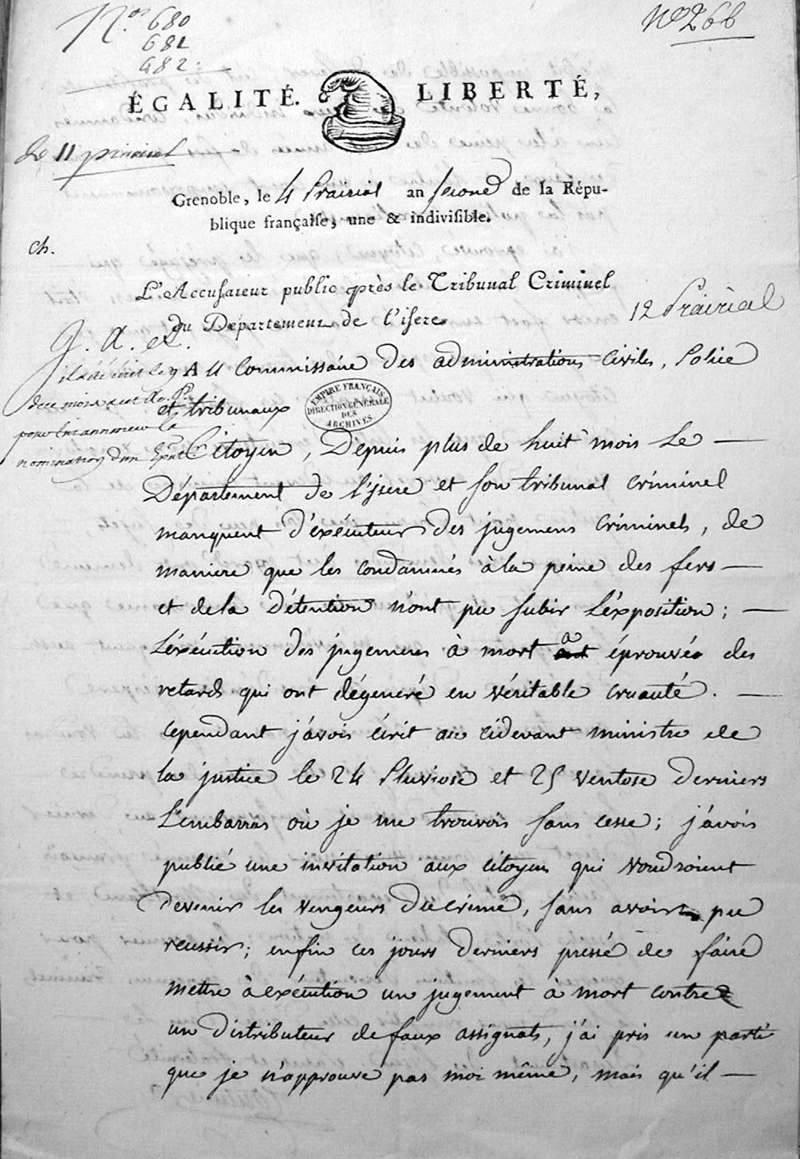 Nos 680
681
682.
No 266
ÉGALITÉ. LIBERTÉ,
de 11 prairial
Grenoble, le 4 Prairial an second de la Répu-
blique française, une & indivisible.
ch.
L'Accusateur public près le Tribunal Criminel
du Département de l'isere
12 Prairial
A u Commissaire des administrations Civiles, Police
et tribunaux
EMPIRE FRANÇAIS
DIRECTION GÉNÉRALE
DES
ARCHIVES.
pour la
nomination d'un
Citoyen, Depuis plus de huit mois Le —
Département de l'isere et son tribunal criminel
manquent d'exécuteur des jugemens criminels, de
maniere que les condamnés à la peine des fers —
et de la détention n'ont pu subir l'exposition; —
L'exécution des jugemens à mort a éprouvé des
retards qui ont dégeneré en véritable cruauté. —
cependant j'avois écrit au cidevant ministre de
la justice le 24 Pluviose et 25 Ventose derniers
L'embarras où je me trouvois sans cesse; j'avois
publié une invitation aux citoyens qui voudroient
Devenir les vengeurs du crime, sans avoir pu
reussir; enfin ces jours derniers pressé de faire
mettre à exécution un jugement à mort contre
un distributeur de faux assignats, j'ai pris un parti
que je n'approuve pas moi même, mais qu'il —